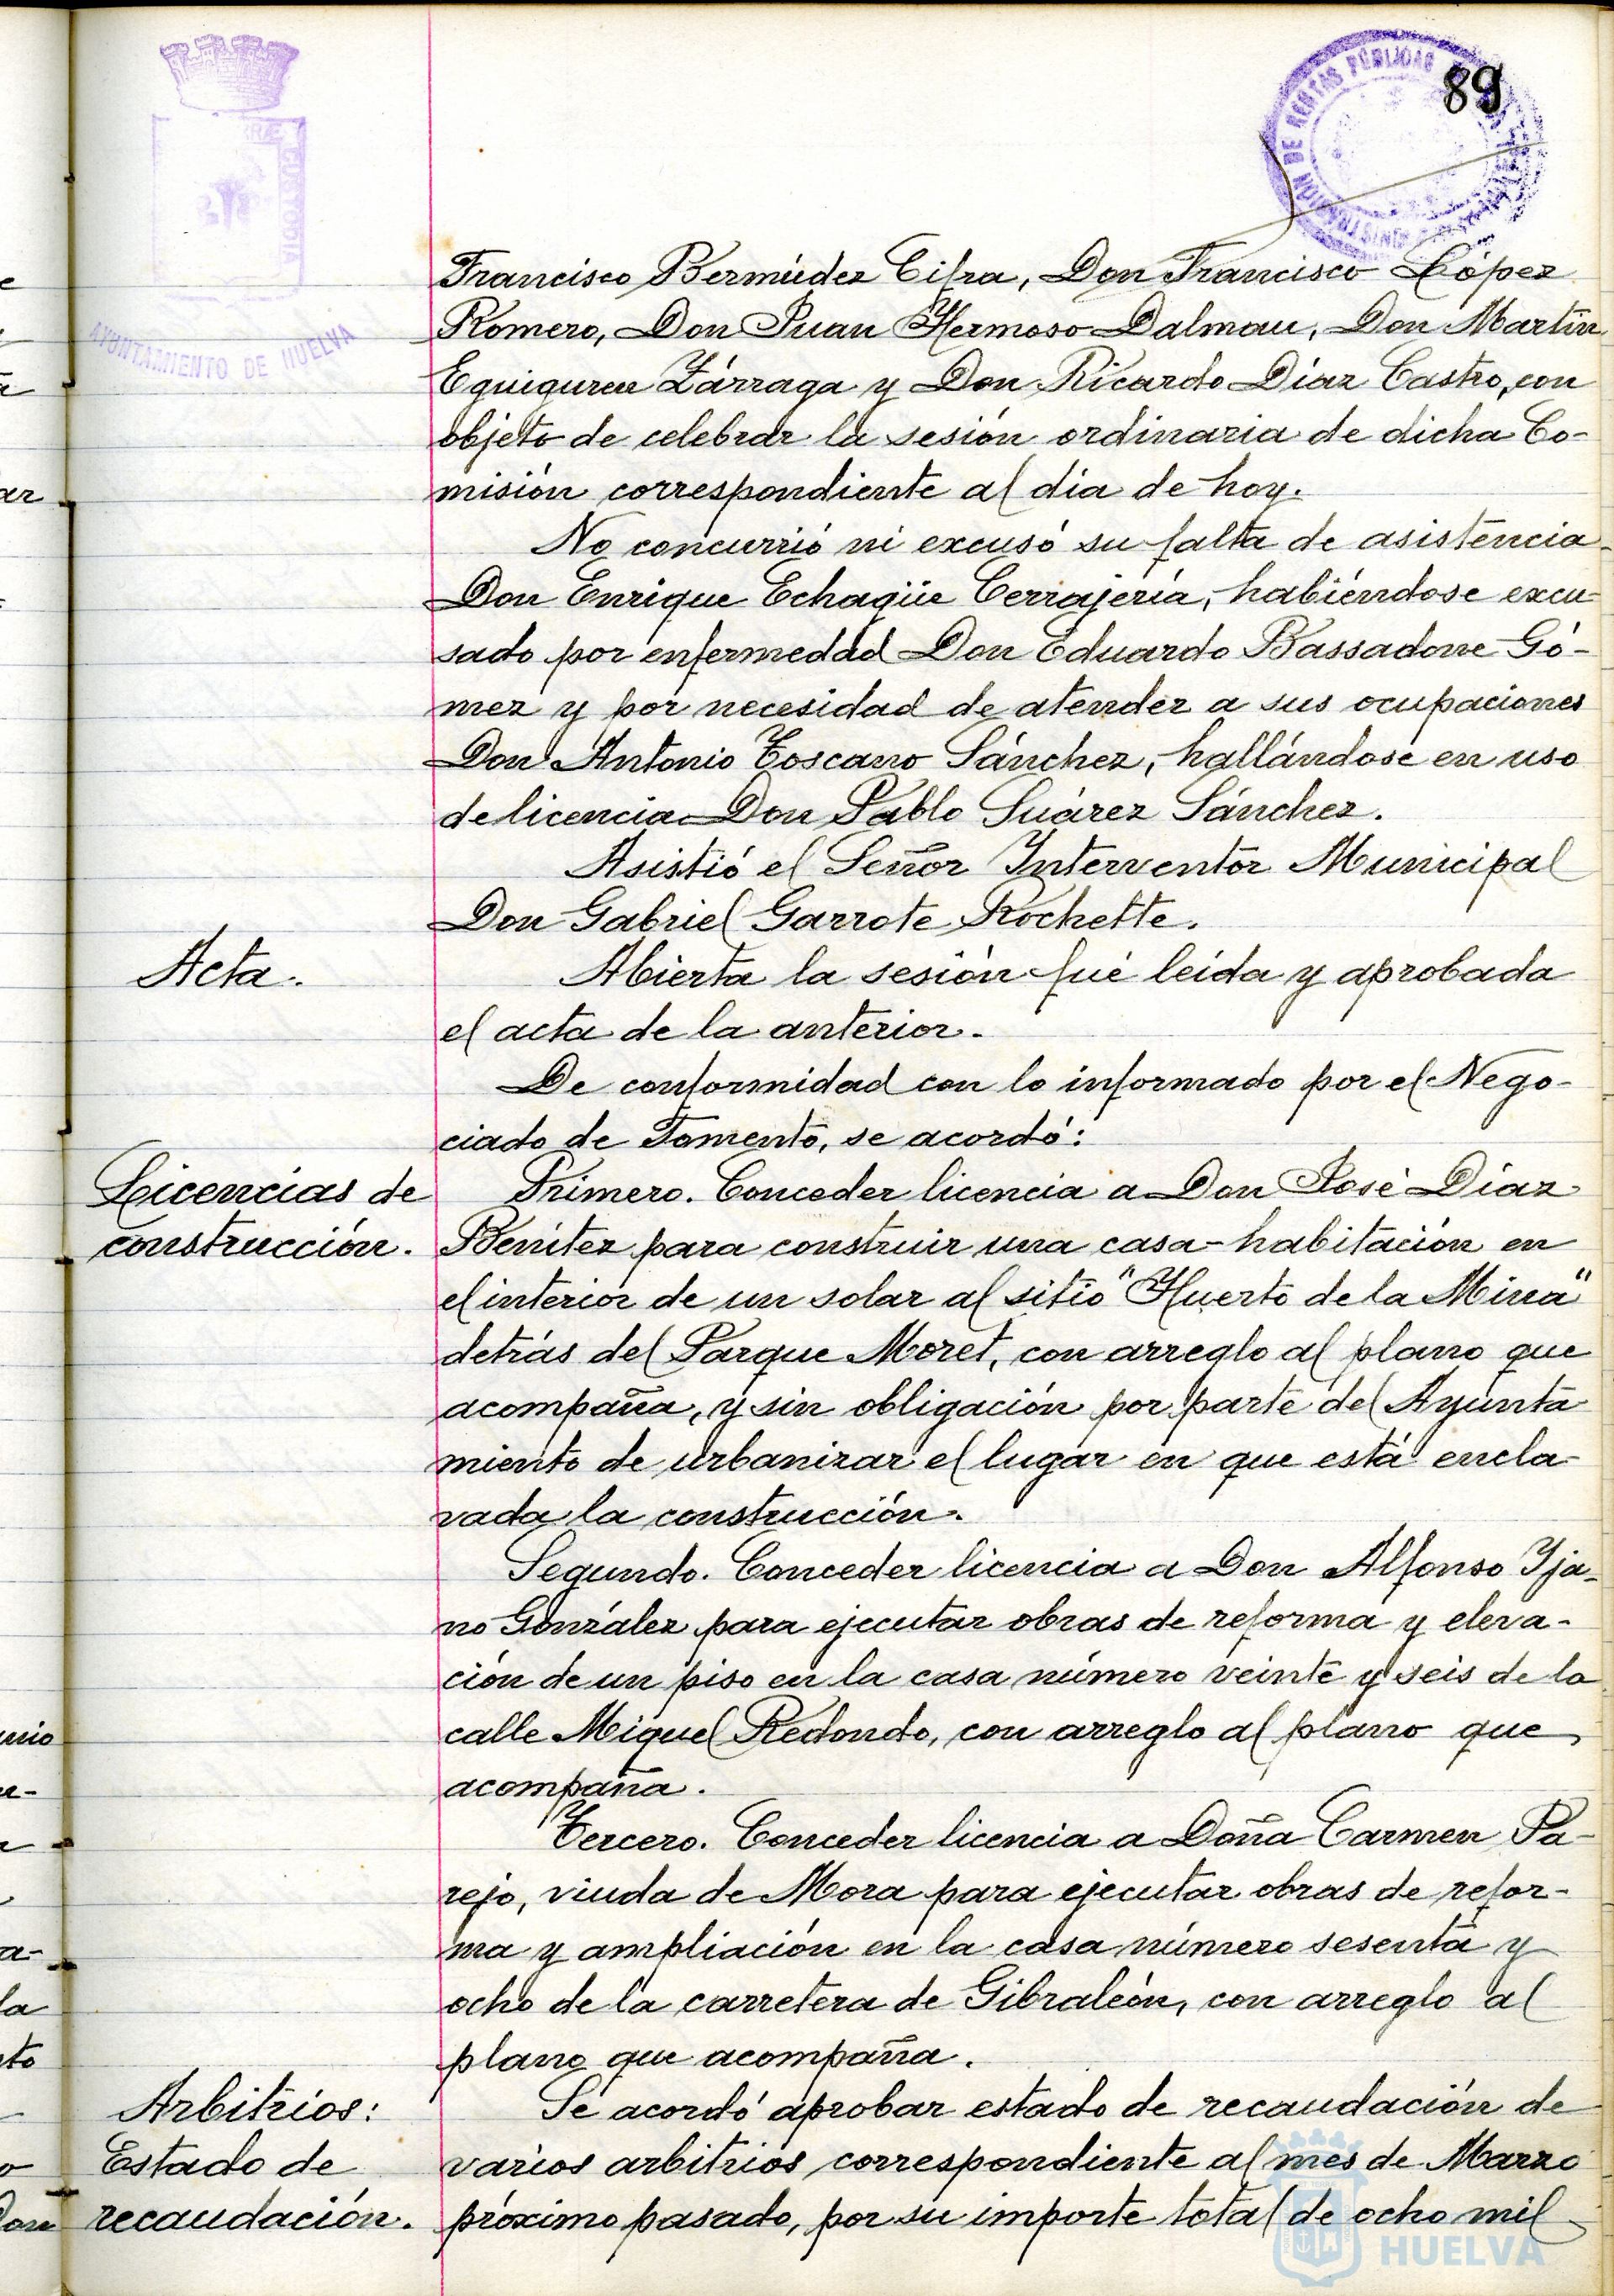 89
ADMINISTRACIÓN DE RENTAS PÚBLICAS
CUSTODIA
AYUNTAMIENTO DE HUELVA
Francisco Bermúdez Cifra, Don Francisco López
Romero, Don Juan Hermoso Dalmau, Don Martín
Eguiguren Zárraga y Don Ricardo Díaz Castro, con
objeto de celebrar la sesión ordinaria de dicha Co-
misión correspondiente al día de hoy.
No concurrió ni excusó su falta de asistencia
Don Enrique Echagüe Cerrajería, habiéndose excu-
sado por enfermedad Don Eduardo Bassadone Gó-
mez y por necesidad de atender a sus ocupaciones
Don Antonio Toscano Sánchez, hallándose en uso
de licencia Don Pablo Suárez Sánchez.
Asistió el Señor Interventor Municipal
Don Gabriel Garrote Rochette.
Acta.
Abierta la sesión fué leída y aprobada
el acta de la anterior.
De conformidad con lo informado por el Nego-
ciado de Fomento, se acordó:
Licencias de
construcción.
Primero. Conceder licencia a Don José Díaz
Benítez para construir una casa-habitación en
el interior de un solar al sitio "Huerto de la Mina"
detrás del Parque Moret, con arreglo al plano que
acompaña, y sin obligación por parte del Ayunta
miento de urbanizar el lugar en que está encla-
vada la construcción.
Segundo. Conceder licencia a Don Alfonso Yja-
no González para ejecutar obras de reforma y eleva-
ción de un piso en la casa número veinte y seis de la
calle Miguel Redondo, con arreglo al plano que
acompaña.
Tercero. Conceder licencia a Doña Carmen Pa-
rejo, viuda de Mora para ejecutar obras de refor-
ma y ampliación en la casa número sesenta y
ocho de la carretera de Gibraleón, con arreglo al
plano que acompaña.
Arbitrios:
Estado de
recaudación.
Se acordó aprobar estado de recaudación de
varios arbitrios correspondiente al mes de Marzo
próximo pasado, por su importe total de ocho mil
HUELVA